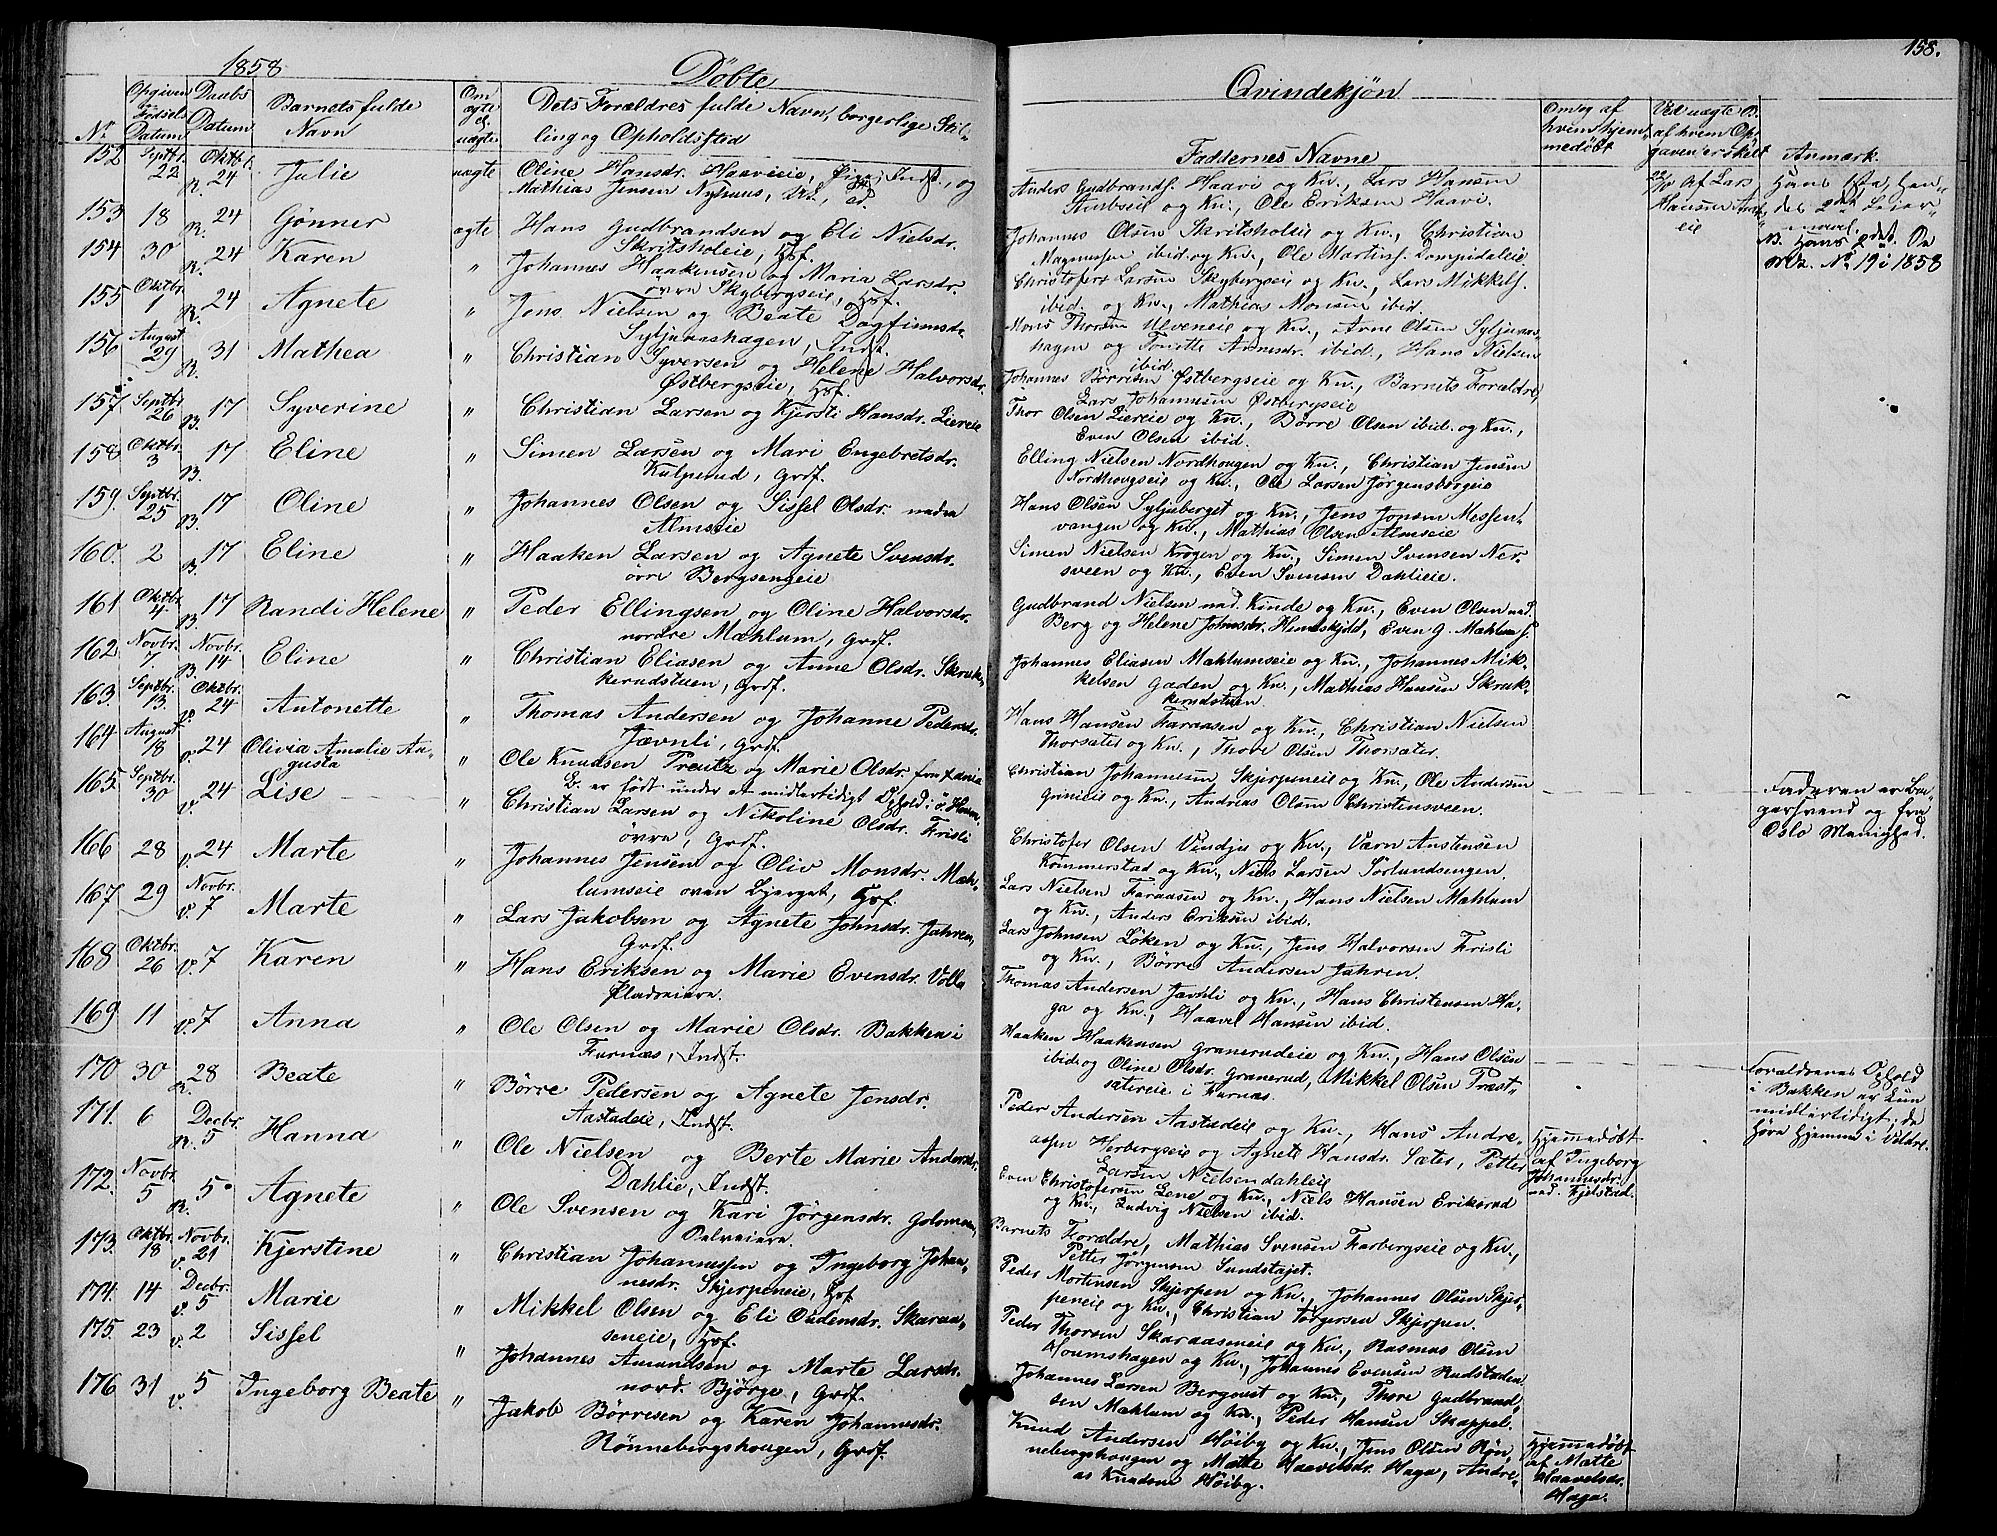 1858
Døbte
Qvindekjøn
158.
No
Opgiven Fødsels Datum
Daabs Datum
Barnets fulde Navn
Om ægte el. uægte
Dets Forældres fulde Navn, borgerlige Stil-
ling og Opholdssted
Faddernes Navne
Om og af hvem hjem-
medøbt
Ved uægte B. af hvem Op-
gaven er skeet
Anmærk.
152 Septbr. 22 Oktbr. R. 24 Julie uægte Oline Hansdr. Haavieie, Pige, Indst., og
Mathias Jensen Nyhuus,
Anders Gudbrands. Haavi og Kn., Lars Hansen
og Kn., Ole Eriksen Haavi.
Af Lars
Hansen
eie
Hans 1ste, Hen-
des 2det Leier-
maal.
153 18 R. 24 Gønner ægte Hans Gudbrandsen og Eli Nielsdr.
Skritsholeie, Hbf.
Johannes Olsen Skritsholeie og Kn., Christian
Magnusen ibid. og Kn., Ole Martins. Dompidaleie
No. 19 i 1858
154 30 R. 24 Karen " Johannes Haakensen og Maria Larsdr.
øvre Skybergseie, Hbf.
Christofer Larsen Skybergseie og Kn., Lars Mikkels.
ibid. og Kn., Mathias Monsen ibid.
155 Oktbr. 1 R. 24 Agnete " Jens Nielsen og Beate Dagfinnsdr.
Syljuaashagen, Indst.
Mons Thorsen Ulveneie og Kn., Arne Olsen Syljuaas-
hagen og Tonette Arnesdr. ibid., Hans Nielsen
ibid.
156 August 29 R. 31 Mathea " Christian Syversen og Helene Halvorsdr.
Østbergseie, Hbf.
Johannes Børresen Østbergseie og Kn., Barnets Forældre,
Lars Johannesen Østbergseie
157. Septbr. 26 B. 17 Syverine " Christian Larsen og Kjersti Hansdr. Liereie
Thor Olsen Liereie og Kn., Børre Olsen ibid. og Kn.,
Even Olsen ibid.
158 Oktbr. 3 B. 17 Eline " Simen Larsen og Mari Engebretsdr.
Kulperud, Grdf.
Elling Nielsen Nordhougen og Kn., Christian Jensen
Nordhovgseie og Kn., Ole Larsen Jørgensbergeie
159. Septbr. 25 B. 17 Oline " Johannes Olsen og Sissel Olsdr. nedre
Almseie
Hans Olsen Syljeberget og Kn., Jens Jonsen Messen-
vangen og Kn., Mathias Olsen Almseie
160. 2 B. 17 Eline " Haaken Larsen og Agnete Svensdr.
øvre Bergsengeie
Simen Nielsen Krogen og Kn., Simen Svensen Ner-
sveen og Kn., Even Svensen Dahlieie.
161 Oktbr. 4 B. 17 Randi Helene " Peder Ellingsen og Oline Halvorsdr.
nordre Mæhlum, Grdf.
Gudbrand Nielsen ned. Kinde og Kn., Even Olsen ned.
Berg og Helene Johnsdr. Hemskjold, Even G. Mæhlum
162 Novbr. 7 Novbr. B. 14 Eline " Christian Eliasen og Anne Olsdr. Skruk-
kerudstuen, Grdf.
Johannes Eliasen Mæhlumseie og Kn., Johannes Mik-
kelsen Gaden og Kn., Mathias Hansen Skruk-
kerudstuen
163. Septbr. 13. Oktbr. v. 24 Antonette " Thomas Andersen og Johanne Pedersdr.
Jævnli, Grdf.
Hans Hansen Faraasen og Kn., Christian Nielsen
Thorsæter og Kn., Thore Olsen Thorsæter.
164 August 18 v. 24 Olivia Amalie Au-
gusta " Ole Knudsen Trætz og Marie Olsdr. fra
B. er født under et midlertidigt Ophold i
Christian Johannesen Skjerpeneie og Kn., Ole Andersen
Grineie og Kn., Andreas Olsen Christensveen.
Faderen er
og fra
Oslo Menighed.
165. Septbr. 30 v. 24 Lise " Christian Larsen og Nikoline Olsdr. Fristi
øvre, Grdf.
Christofer Olsen Vindju og Kn., Værn Austensen
Kommerstad og Kn., Niels Larsen Sørlundsengen.
166 28 v. 24 Marte " Johannes Jensen og Oliv Monsdr. Mæh-
lumseie oven Bjerget, Hbf.
Lars Nielsen Faraasen og Kn., Hans Nielsen Mæhlum
og Kn., Anders Eriksen ibid.
167. 29 Novbr. v. 7 Marte " Lars Jakobsen og Agnete Johnsdr. Jahren,
Grdf.
Lars Johnsen Løken og Kn., Jens Halvorsen Fristi
og Kn., Børre Andersen Jahren.
168 Oktbr. 26 v. 7 Karen " Hans Eriksen og Marie Evensdr. Volla
Pladseiere.
Thomas Andersen Jævnli og Kn., Hans Christensen Ha-
ga og Kn., Haavel Hansen ibid.
169 11 v. 7 Anna " Ole Olsen og Marie Olsdr. Bakken i
Furnæs, Indst.
Haaken Haakensen Granerudeie og Kn., Hans Olsen
ibid og Oline Olsdr. Granerud, Mikkel Olsen Præst-
sætreie i Furnæs.
Forældrenes Ophold
i Bakken er kun
midlertidigt; de
høre hjemme i Veldre.
170 30 R. 28 Beate " Børre Pedersen og Agnete Jensdr.
Aastadeie, Indst.
Peder Andersen Aastadeie og Kn., Hans Andre-
asen Herbergseie og Agnete Hansdr. Sæter, Petter
Larsen Nielsendahleie
171. 6 Decbr. R. 5 Hanna " Ole Nielsen og Berte Marie Andersdr.
Dahlie, Indst.
Even Christofersen Lene og Kn., Niels Hansen Eriksrud
og Kn., Ludvig Nielsen ibid.
Hjemmedøbt
af Ingeborg
Johannesdr.
ned. Kjelstad.
172. Novbr. 5 R. 5 Agnete " Ole Svensen og Kari Jørgensdr. Golomoen,
Delveiere.
Barnets Forældre, Mathias Svensen Farbergseie og Kn.,
Petter Jørgensen Sundstøjet.
173. Oktbr. 18 Novbr. v. 21 Kjerstine " Christian Johannessen og Ingeborg Johan-
nesdr. Skjerpeneie, Hbf.
Peder Mortensen Skjerpen og Kn., Johannes Olsen Skjer-
peneie og Kn., Christian Torgersen Skjerpen.
174. 14 Decbr. v. 5 Marie " Mikkel Olsen og Eli Oudensdr. Skaraa-
seneie, Hbf.
Peder Thorsen Skaraaseneie og Kn., Rasmus Olsen
Houmshagen og Kn., Johannes Evensen Rudstaden
175. 23 v. 2 Sissel " Johannes Amundsen og Marte Larsdr.
nord. Bjørge, Grdf.
Johannes Larsen Bergqvist og Kn., Thore Gudbrand-
sen Mæhlum og Kn., Peder Hansen Skappel.
176 31 v. 5 Ingeborg Beate " Jakob Børresen og Karen Johannesdr.
Rønnebergshougen, Grdf.
Knud Andersen Høiby og Kn., Jens Olsen Røn-
nebergshougen og Mette Haavelsdr. Haga, Andre-
as Knudsen Høiby.
Hjemmedøbt
af Mætte
Haavelsdr.
Haga.